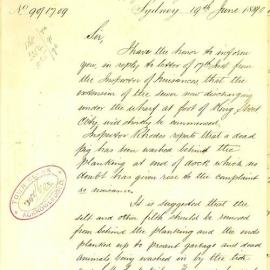 No. 90/1709
Sydney, 19th June 1890
Sir,
I have the honor to inform
you, in reply to letter of 17th Inst from
the Inspector of Nuisances, that the
extension of the sewer now discharging
under the wharf at foot of King Street
City will shortly be commenced.
Inspector Rhodes reports that a dead
pig has been washed behind the
planking at end of dock which no
doubt has given rise to the complaint
re nuisance.
It is suggested that the
silt and other filth should be removed
from behind the planking and the ends
planked up to prevent garbage and dead
animals being washed in by the tide
TOWN CLERK
ACKNOWLEDGED